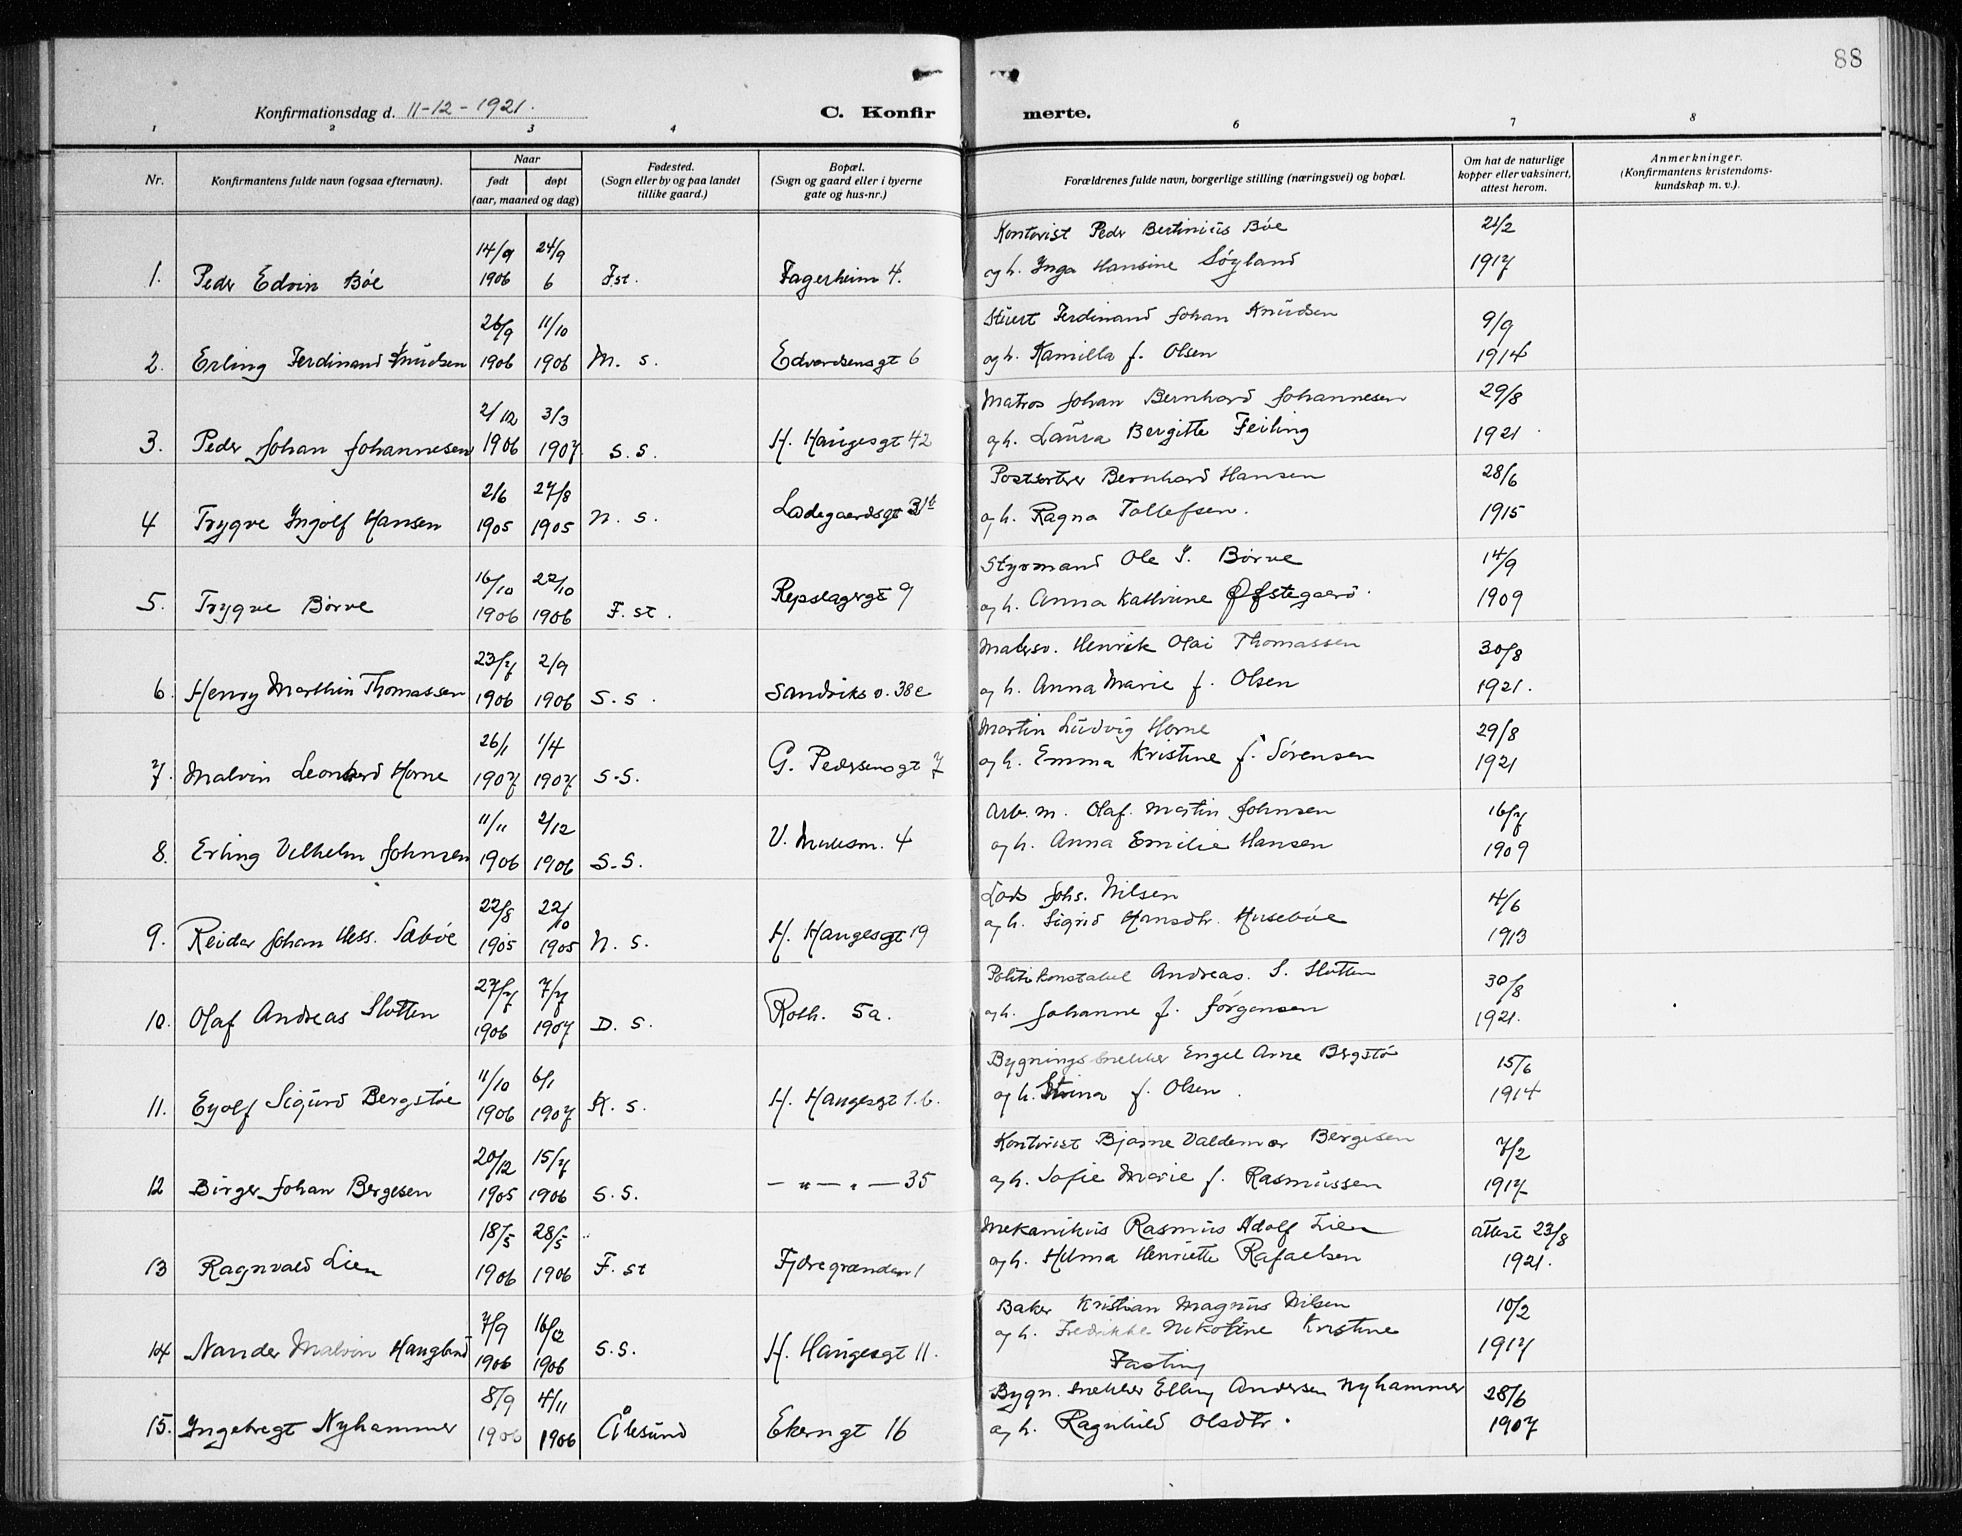 88
Konfirmationsdag d. 11-12-1921.
C. Konfir merte.
1 2 3 4 5 6 7 8
Nr.
Konfirmantens fulde navn (ogsaa efternavn).
Naar
født døpt
(aar, maaned og dag)
Fødested.
(Sogn eller by og paa landet
tillike gaard.)
Bopæl.
(Sogn og gaard eller i byerne
gate og hus-nr.)
Forældrenes fulde navn, borgerlige stilling (næringsvei) og bopæl.
Om hat de naturlige
kopper eller vaksinert,
attest herom.
Anmerkninger.
(Konfirmantens kristendoms-
kundskap m. v.).
14/9 24/9 Kontorist Peder Bertinius Bøe 21/2
1. Peder Edvin Bøe 1906 6 F.st. Fagerheim 4. og h. Inga Hansine Søyland 1917
26/9 11/10 Stuert Ferdinand Johan Knudsen 9/9
2. Erling Ferdinand Knudsen 1906 1906 M. s. Edvardsensgt 6 og h. Kamilla f. Olsen 1914
2/12 3/3 Matros Johan Bernhard Johannesen 29/8
3. Peder Johan Johannesen 1906 1907 S.S. H. Haugesgt 42 og h. Laura Bergitte Feiling 1921
2/6 27/8 Postsorterer Bernhard Hansen 28/6
4 Trygve Ingolf Hansen 1905 1905 N. s. Ladegaardsgt og h. Ragna Tollefsen. 1915
16/10 22/10 Styrmand Ole I. Børve 14/9
5. Trygve Børve 1906 1906 F. st. Repslagergt 9 og h. Anna Kathrine Øfstegaard. 1909
23/7 2/9 Malersv. Henrik Olai Thomassen 30/8
6. Henry Marthin Thomassen 1906 1906 S.S. Sandviks v. 38c og h. Anna Marie f. Olsen 1921.
26/1 1/4 Martin Ludvig Horne 29/8
7. Malvin Leonhard Horne 1907 1907 S.S. G. Pedersensgt 7 og h. Emma Kristine f. Sørensen 1921
11/11 2/12 Arb. m. Olaf. Martin Johnsen 16/7
8. Erling Vilhelm Johnsen 1906 1906 S.S. V. Mulesm. 4 og h. Anna Emilie Hansen 1909
22/8 22/10 Lods Johs. Nilsen 4/6
9. Reidar Johan Hess. Sæbøe 1905 1905 N. S. H. Haugesgt 19 og h. Sigrid Hansdtr. Husebøe 1913
27/7 7/7 Politikonstabel Andreas. S. Slotten 30/8
10. Olaf Andreas Slotten 1906 1907 D. S. Roth. 5a. og h. Johanne f. Jörgensen 1921.
11/10 6/1 Bygningssnekker Engel Arne Bergstø 15/6
11. Eyolf Sigurd Bergstøe 1906 1907 K. s. H. Haugesgt 1.b. og h. Stina f. Olsen. 1914
20/12 15/7 Kontorist Bjarne Valdemar Bergesen 7/2
12 Birger Johan Bergesen 1905 1906 S.S. — " — " — 35 og h. Sofie Marie f. Rasmussen 1917
18/5 28/5 Mekanikus Rasmus Adolf Lien attest 23/8
13 Ragnvald Lien 1906 1906 F. st Fjæregrænden 1 og h. Hilma Henriette Rafaelsen 1921.
7/9 16/12 Baker Kristian Magnus Nilsen 10/2
14 Nander Malvin Haugland 1906 1906 S.S. H. Haugesgt 11. og h. Fredrikke Nikoline Kristine 1917
Fasting
8/9 4/11 Bygn. snekker Elling Andersen Nyhammer 28/6
15. Ingebregt Nyhammer 1906 1906 Ålesund Ekerngt 16 og h. Ragnhild Olsdtr. 1907